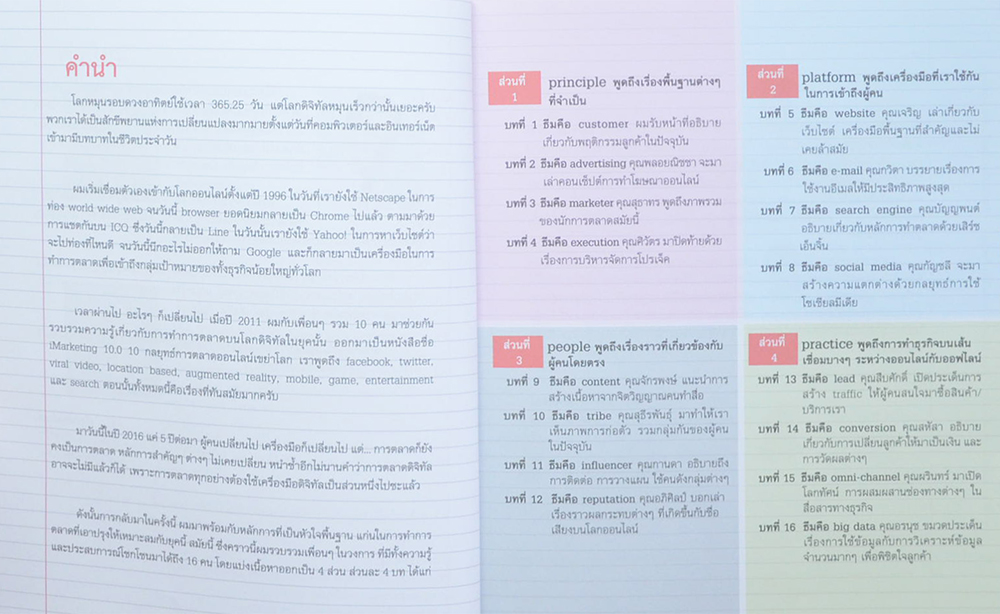 คำนำ
โลกหมุนรอบดวงอาทิตย์ใช้เวลา 365.25 วัน แต่โลกดิจิทัลหมุนเร็วกว่านั้นเยอะครับ
พวกเราได้เป็นสักขีพยานแห่งการเปลี่ยนแปลงมากมายตั้งแต่วันที่คอมพิวเตอร์และอินเทอร์เน็ต
เข้ามามีบทบาทในชีวิตประจำวัน
ผมเริ่มเชื่อมตัวเองเข้ากับโลกออนไลน์ตั้งแต่ปี 1996 ในวันที่เรายังใช้ Netscape ในการ
ท่อง world wide web จนวันนี้ browser ยอดนิยมกลายเป็น Chrome ไปแล้ว ตามมาด้วย
การแชตกันบน ICQ ซึ่งวันนี้กลายเป็น Line ในวันนั้นเรายังใช้ Yahoo! ในการหาเว็บไซต์ว่า
จะไปท่องที่ไหนดี จนวันนี้นึกอะไรไม่ออกให้ถาม Google และก็กลายมาเป็นเครื่องมือในการ
ทำการตลาดเพื่อเข้าถึงกลุ่มเป้าหมายของทั้งธุรกิจน้อยใหญ่ทั่วโลก
เวลาผ่านไป อะไรๆ ก็เปลี่ยนไป เมื่อปี 2011 ผมกับเพื่อนๆ รวม 10 คน มาช่วยกัน
รวบรวมความรู้เกี่ยวกับการทำการตลาดบนโลกดิจิทัลในยุคนั้น ออกมาเป็นหนังสือชื่อ
iMarketing 10.0 10 กลยุทธ์การตลาดออนไลน์เขย่าโลก เราพูดถึง facebook, twitter,
viral video, location based, augmented reality, mobile, game, entertainment
และ search ตอนนั้นทั้งหมดนี้คือเรื่องที่ทันสมัยมากครับ
มาวันนี้ในปี 2016 แค่ 5 ปีต่อมา ผู้คนเปลี่ยนไป เครื่องมือก็เปลี่ยนไป แต่... การตลาดก็ยัง
คงเป็นการตลาด หลักการสำคัญๆ ต่างๆ ไม่เคยเปลี่ยน หนำซ้ำอีกไม่นานคำว่าการตลาดดิจิทัล
อาจจะไม่มีแล้วก็ได้ เพราะการตลาดทุกอย่างต้องใช้เครื่องมือดิจิทัลเป็นส่วนหนึ่งไปซะแล้ว
ดังนั้นการกลับมาในครั้งนี้ ผมมาพร้อมกับหลักการที่เป็นหัวใจพื้นฐาน แก่นในการทำการ
ตลาดที่เอาปรุงให้เหมาะสมกับยุคนี้ สมัยนี้ ซึ่งคราวนี้ผมรวบรวมเพื่อนๆ ในวงการ ที่มีทั้งความรู้
และประสบการณ์โชกโชนมาได้ถึง 16 คน โดยแบ่งเนื้อหาออกเป็น 4 ส่วน ส่วนละ 4 บท ได้แก่
ส่วนที่
1
principle พูดถึงเรื่องพื้นฐานต่างๆ
ที่จำเป็น
บทที่ 1 ธีมคือ customer ผมรับหน้าที่อธิบาย
เกี่ยวกับพฤติกรรมลูกค้าในปัจจุบัน
บทที่ 2 ธีมคือ advertising คุณพลอยณิชชา จะมา
เล่าคอนเซ็ปต์การทำโฆษณาออนไลน์
บทที่ 3 ธีมคือ marketer คุณสุธาทร พูดถึงภาพรวม
ของนักการตลาดสมัยนี้
บทที่ 4 ธีมคือ execution คุณศิวัตร มาปิดท้ายด้วย
เรื่องการบริหารจัดการโปรเจ็ค
ส่วนที่
2
platform พูดถึงเครื่องมือที่เราใช้กัน
ในการเข้าถึงผู้คน
บทที่ 5 ธีมคือ website คุณเจริญ เล่าเกี่ยวกับ
เว็บไซต์ เครื่องมือพื้นฐานที่สำคัญและไม่
เคยล้าสมัย
บทที่ 6 ธีมคือ e-mail คุณกวิตา บรรยายเรื่องการ
ใช้งานอีเมลให้มีประสิทธิภาพสูงสุด
บทที่ 7 ธีมคือ search engine คุณบัญญพนต์
อธิบายเกี่ยวกับหลักการทำตลาดด้วยเสิร์ช
เอ็นจิ้น
บทที่ 8 ธีมคือ social media คุณกัญชลี จะมา
สร้างความแตกต่างด้วยกลยุทธ์การใช้
โซเชียลมีเดีย
ส่วนที่
3
people พูดถึงเรื่องราวที่เกี่ยวข้องกับ
ผู้คนโดยตรง
บทที่ 9 ธีมคือ content คุณจักรพงษ์ แนะนำการ
สร้างเนื้อหาจากจิตวิญญาณคนทำสื่อ
บทที่ 10 ธีมคือ tribe คุณสุธีรพันธุ์ มาทำให้เรา
เห็นภาพการก่อตัว รวมกลุ่มกันของผู้คน
ในปัจจุบัน
บทที่ 11 ธีมคือ influencer คุณกานดา อธิบายถึง
การติดต่อ การวางแผน ใช้คนดังกลุ่มต่างๆ
บทที่ 12 ธีมคือ reputation คุณอภิศิลป์ บอกเล่า
เรื่องราวผลกระทบต่างๆ ที่เกิดขึ้นกับชื่อ
เสียงบนโลกออนไลน์
ส่วนที่
4
practice พูดถึงการทำธุรกิจบนเส้น
เชื่อมบางๆ ระหว่างออนไลน์กับออฟไลน์
บทที่ 13 ธีมคือ lead คุณสืบศักดิ์ เปิดประเด็นการ
สร้าง traffic ให้ผู้คนสนใจมาซื้อสินค้า/
บริการเรา
บทที่ 14 ธีมคือ conversion คุณสหัสา อธิบาย
เกี่ยวกับการเปลี่ยนลูกค้าให้มาเป็นเงิน และ
การวัดผลต่างๆ
บทที่ 15 ธีมคือ omni-channel คุณผรินทร์ มาเปิด
โลกทัศน์ การผสมผสานช่องทางต่างๆ ใน
สื่อสารทางธุรกิจ
บทที่ 16 ธีมคือ big data คุณอรนุช ขมวดประเด็น
เรื่องการใช้ข้อมูลกับการวิเคราะห์ข้อมูล
จำนวนมากๆ เพื่อพิชิตใจลูกค้า